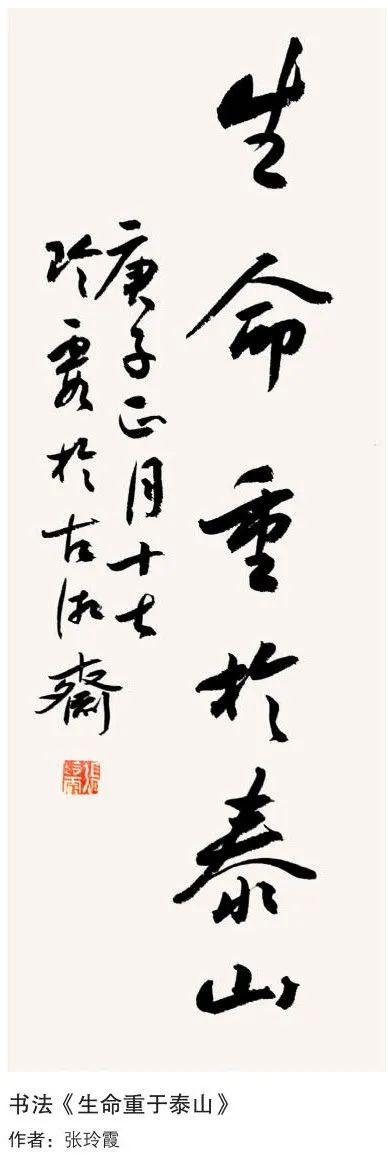 生命重於泰山
庚子正月十七
玲霞於古沭齋
书法《生命重于泰山》
作者：张玲霞